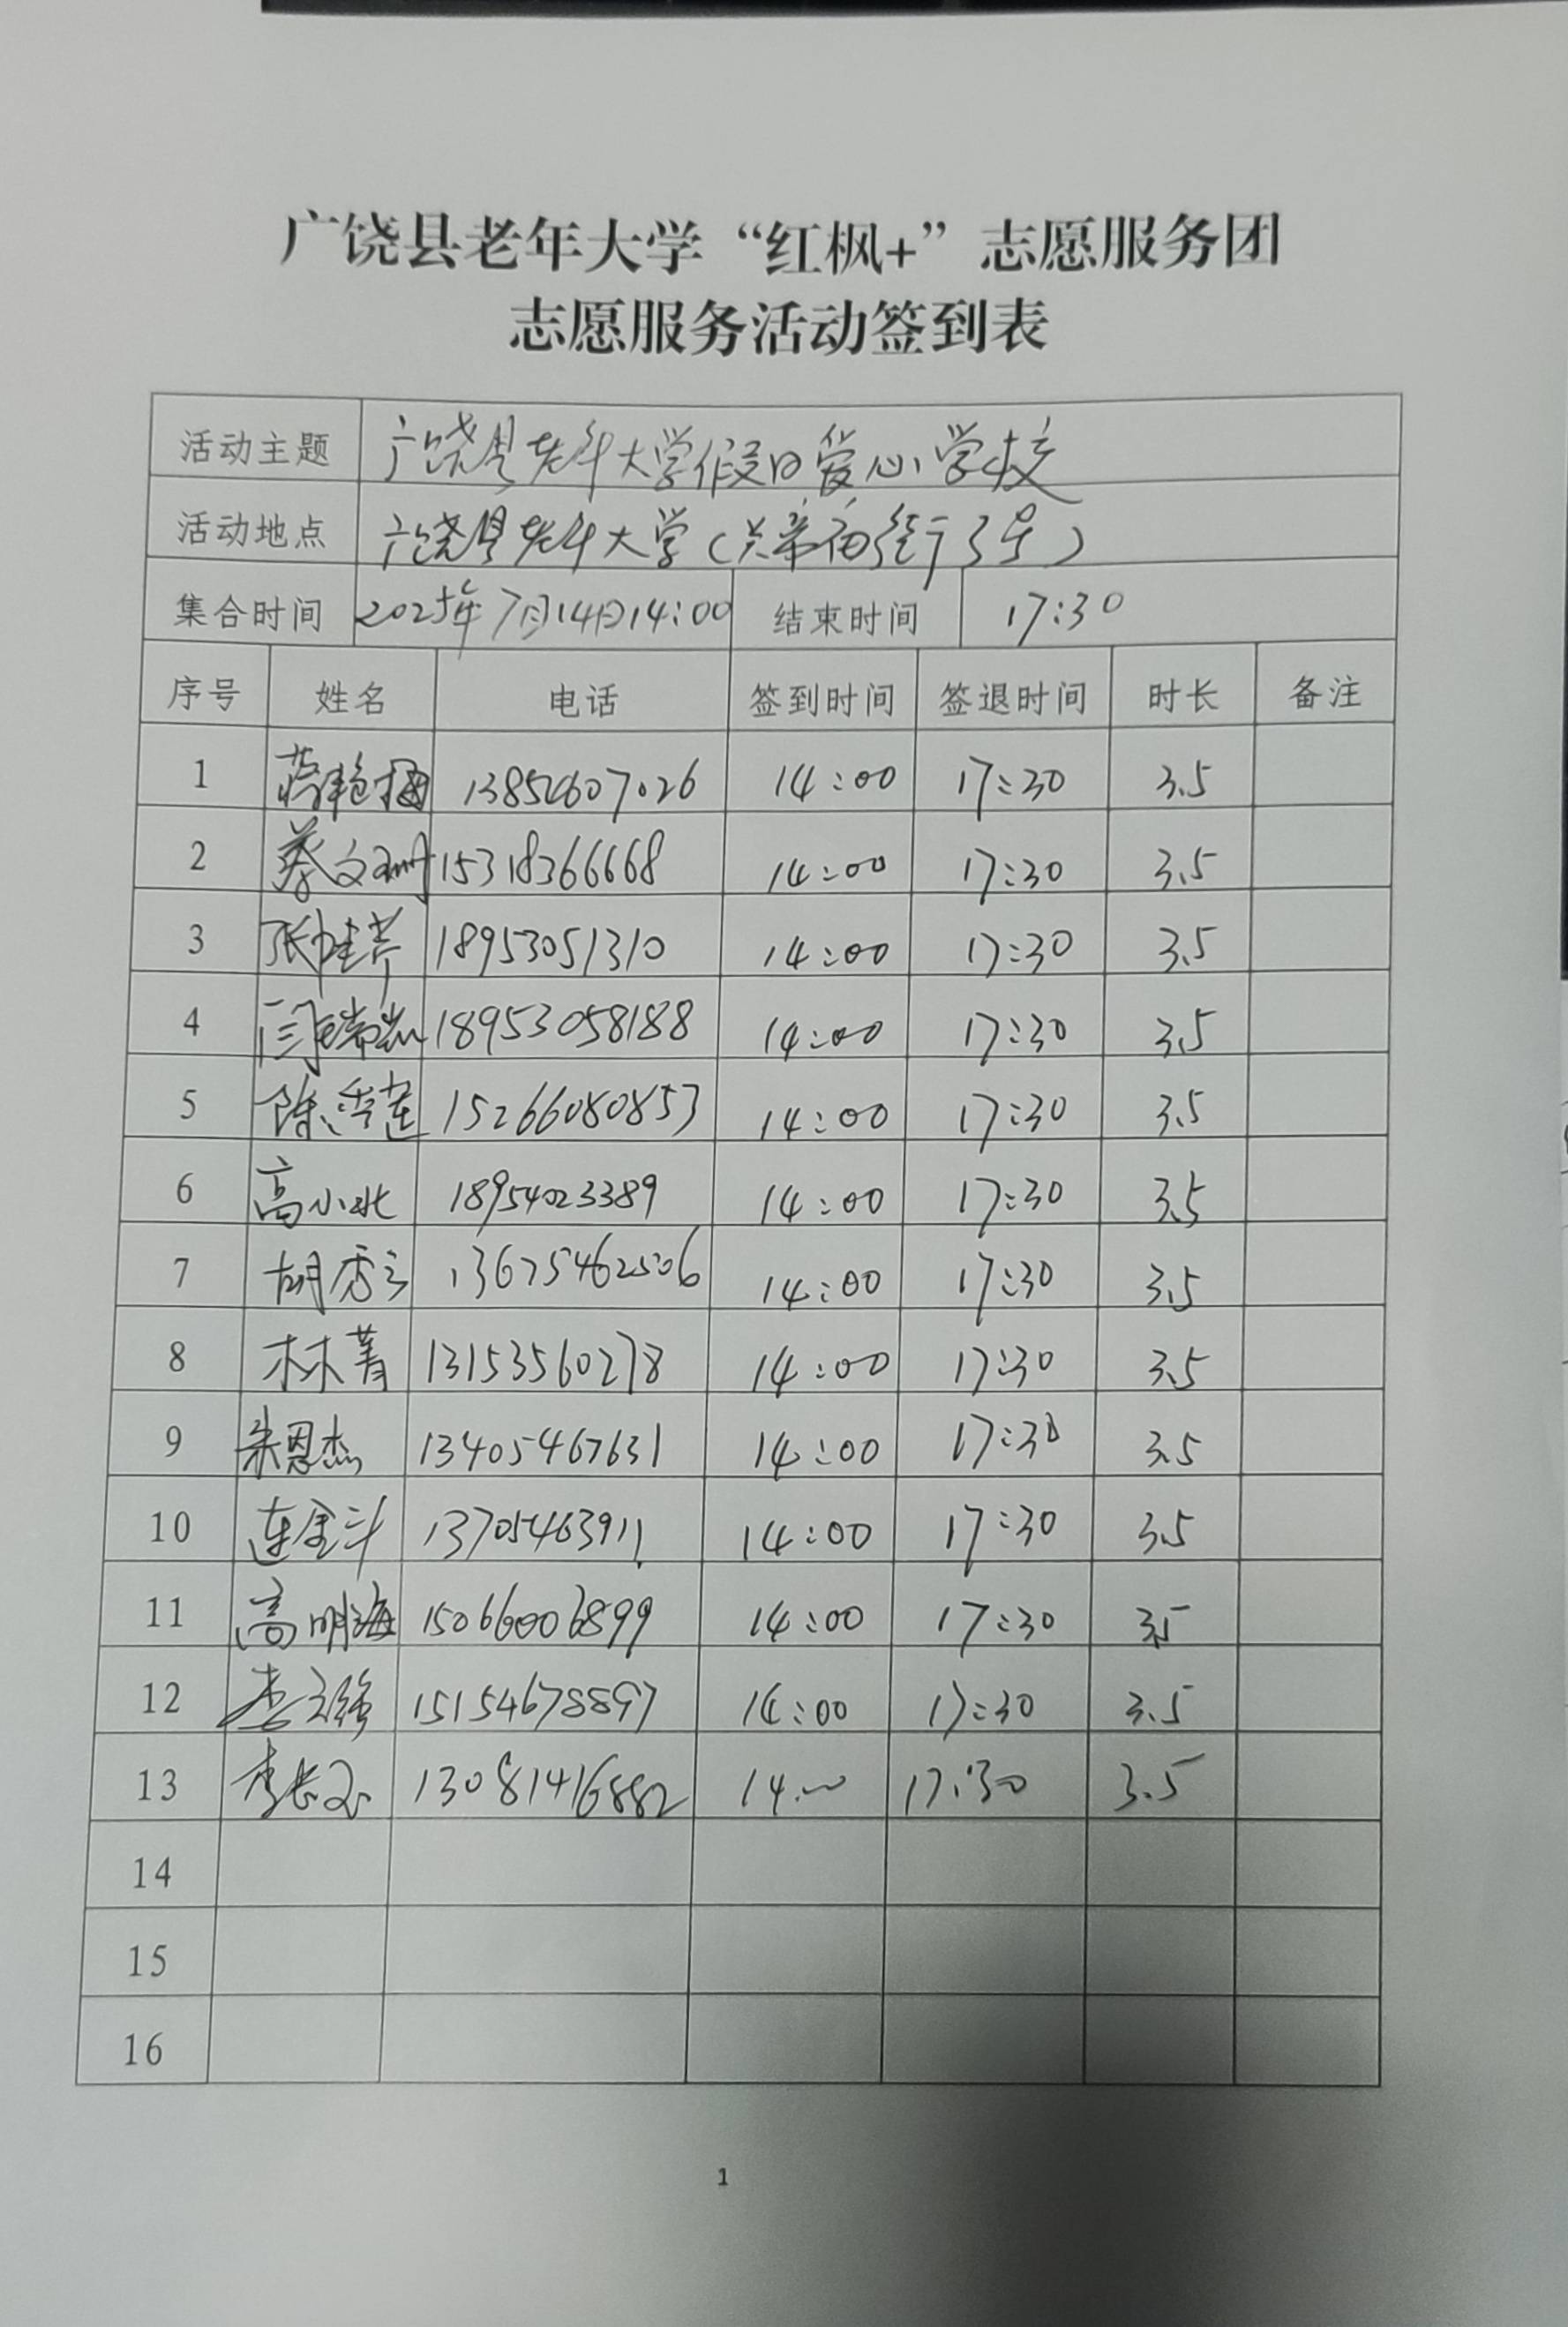 广饶县老年大学“红枫+”志愿服务团
志愿服务活动签到表
活动主题 广饶县老年大学假日爱心学校
活动地点 广饶县老年大学（关帝庙街13号）
集合时间 2025年7月14日14:00 结束时间 17:30
序号 姓名 电话 签到时间 签退时间 时长 备注
1 13854607026 14:00 17:30 3.5
2 蔡文珊 15318366668 14:00 17:30 3.5
3 张桂芹 18953051310 14:00 17:30 3.5
4 闫瑞 18953058188 14:00 17:30 3.5
5 陈秀莲 15266080853 14:00 17:30 3.5
6 高小北 18954023389 14:00 17:30 3.5
7 胡秀云 13675462506 14:00 17:30 3.5
8 林菁 13153560278 14:00 17:30 3.5
9 朱恩杰 13405467631 14:00 17:30 3.5
10 连金斗 13705463911 14:00 17:30 3.5
11 高明海 15066006899 14:00 17:30 3.5
12 李文强 15154678897 14:00 17:30 3.5
13 李长 13081416882 14:00 17:30 3.5
14
15
16
1